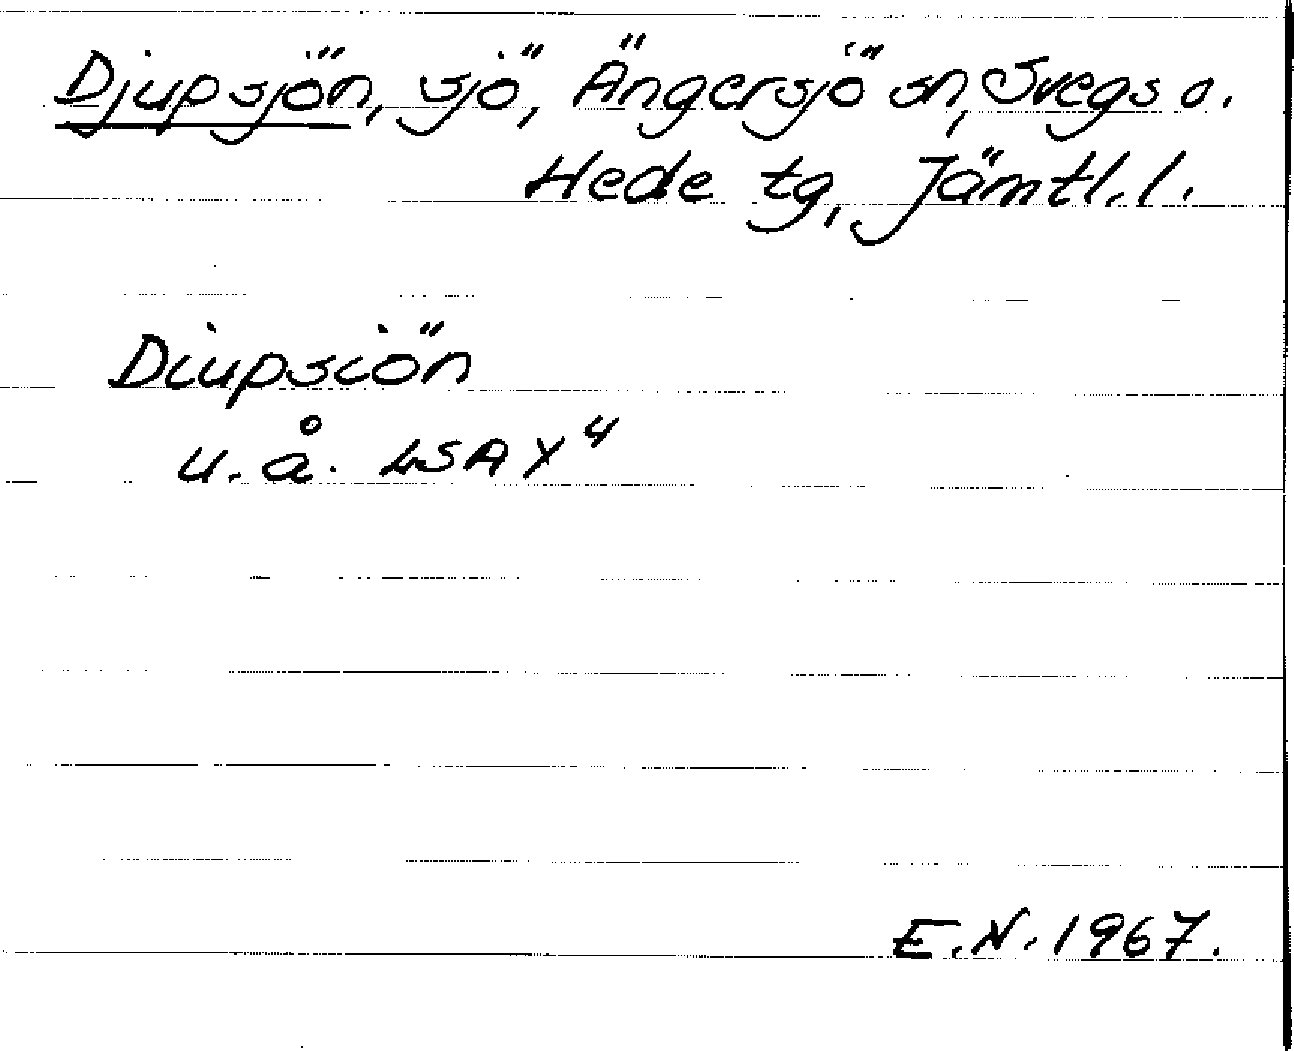 Djupsjön, sjö, Ängersjö sn, Svegs o.
Hede tg, Jämtl. l.
Diupsiön
u. å. LSA Y⁴
E.N. 1967.